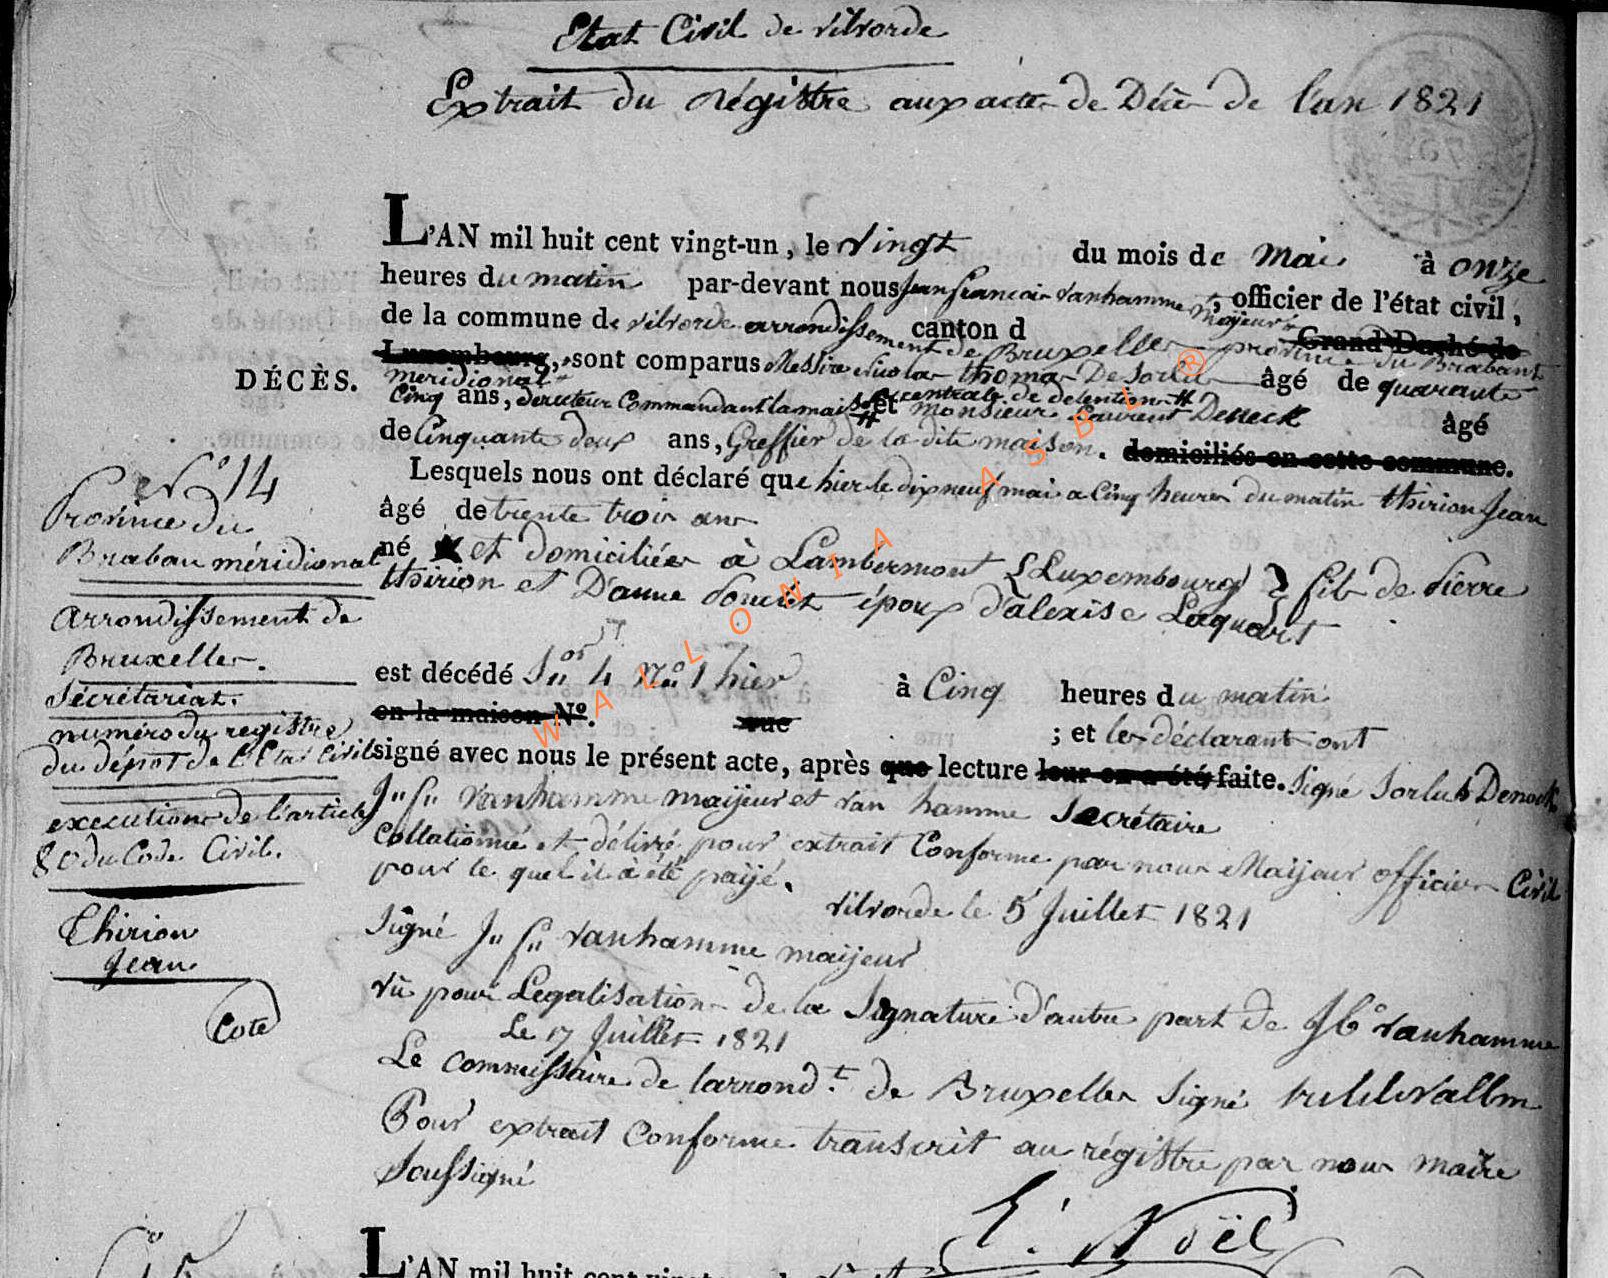 Etat Civil de vilvorde
Extrait du régistre aux actes de Décès de l'an 1821
L'AN mil huit cent vingt-un, le vingt du mois de Mai à onze
heures du matin par-devant nous Jean françois vanhamme Maijeur, officier de l'état civil,
de la commune de vilvorde arrondissement de Bruxelles canton d province du Brabant Grand Duché de
Luxembourg, méridional sont comparus Messire Nicolas thomas De Sorlus âgé de quarante
cinq ans, directeur Commandant la maison centrale de détention et Monsieur Laurent Deneck âgé
de cinquante deux ans, Greffier de la dite maison. domiciliés en cette commune.
DÉCÈS.
Lesquels nous ont déclaré que hier le dix neuf mai a cinq heures du matin thirion Jean
âgé de trente trois ans
né et domiciliée à Lambermont (Luxembourg) fils de Pierre
thirion et D'anne époux d'alexise Laquart
est décédé 4 N° 1 hier à Cinq heures du matin
en la maison N°. rue ; et les déclarant ont
signé avec nous le présent acte, après que lecture leur en a été, faite. Signé Sorlus Deneck
Jn fn vanhamme maijeur et van hamme Secrétaire
Collationné et délivré pour extrait Conforme par nous Maijeur officier Civil
pour le quel il a été païjé.
vilvorde le 5 Juillet 1821
Signé Jn fn vanhamme maijeur
vû pour Legalisation de la Signature d'autre part de vanhamme
Le 17 Juillet 1821
Le commissaire de larrondt. de Bruxelles Signé
Pour extrait Conforme transcrit au régistre par nous maire
Soussigné
Noël
N° 14
Province du
Braban méridional
Arrondissement de
Bruxelles.
Sécrétariat.
numéro du registre
du dépôt de l'Etat Civil
execution de l'article
80 du Code Civil.
Thirion
Jean
Coté
L'AN mil huit cent vingt
WALLONIA ASBL ®